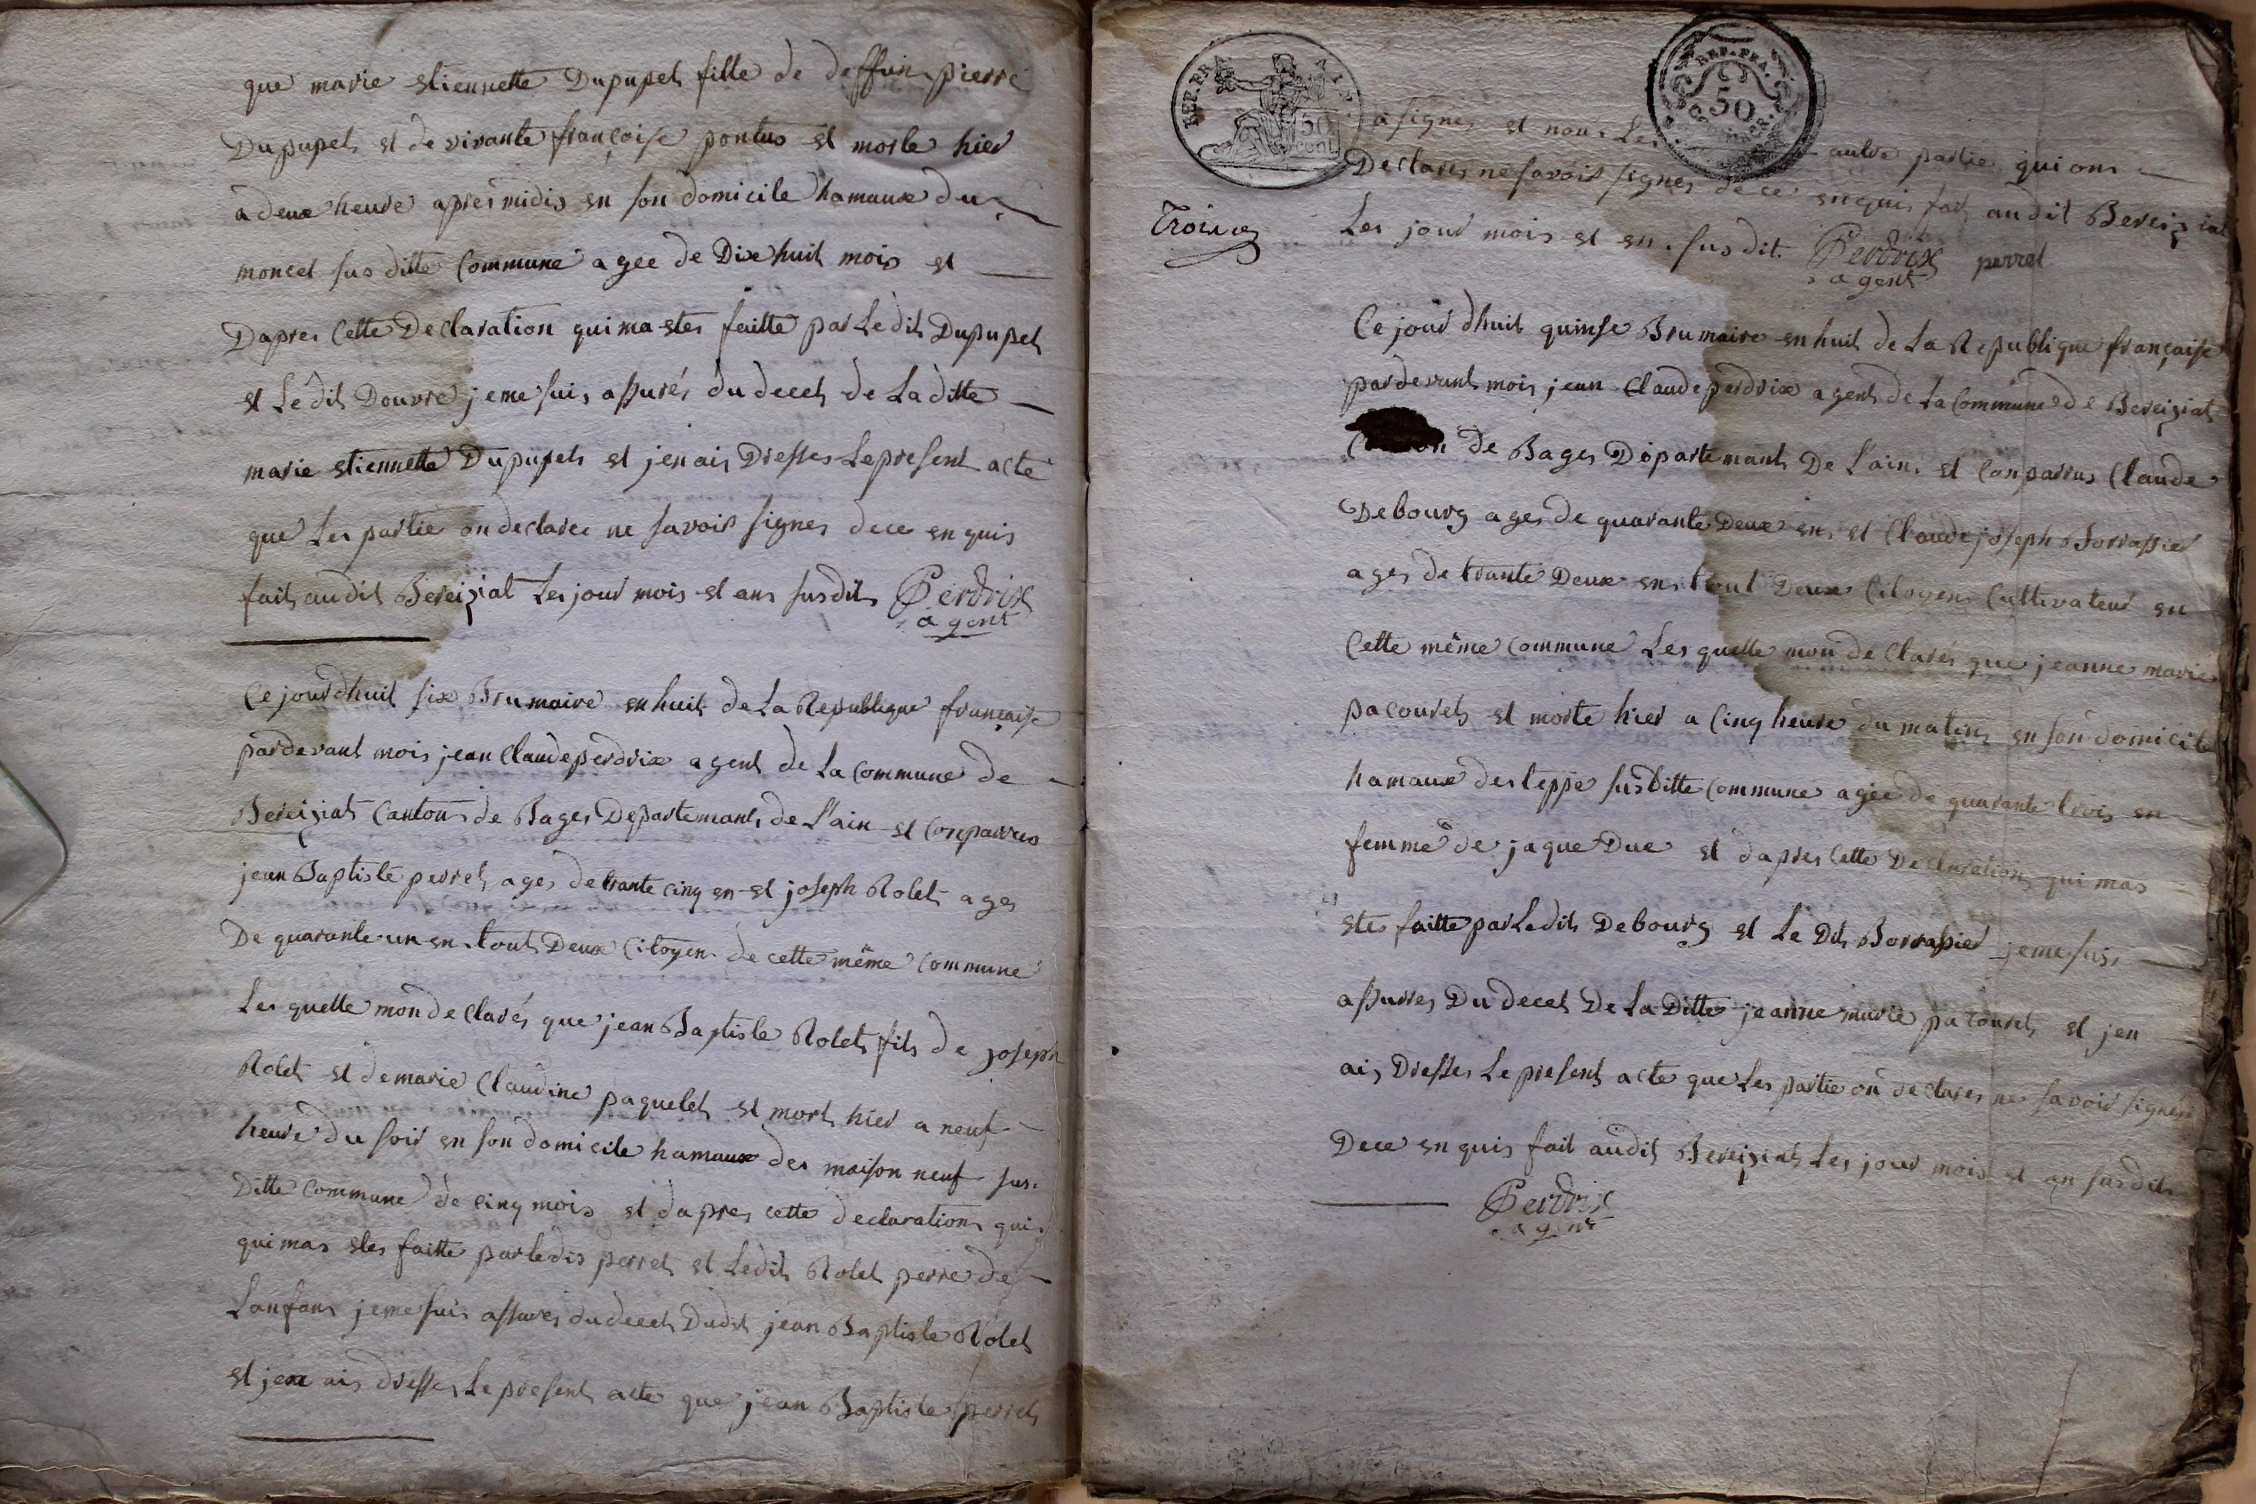 que marie etiennette Dupupet fille de deffun pierre
Dupupet et de vivante françoise pontus et morte hier
a deux heure apres midis en son domicile hamaux du
moncel sus ditte Commune agee de Dix huit mois et
Dapres Cette Declaration qui ma etes faitte par Le dit Dupupet
et Le dit Douvre je me suis assurés du decet de La ditte
marie etiennette Dupupet et jen ais Dresses Le present acte
que Les partie on declaree ne savoir signes de ce enquis
fait audit Bereiziat Les jour mois et ans susdits Perdrix
agent
Ce jourdhuit six Brumaire en huit de La Republique française
pardevant mois jean Claude perdrix agent de La Commune de
Bereiziat Canton de Bages Departemant de L'ain et Conparrus
jean Baptiste perret ages de trante cinq en et joseph Rolet ages
De quarante un en tout Deux Citoyen de cette même Commune
Les quelle mon declarés que jean Baptiste Rolet fils de joseph
Rolet et de marie Claudine paquelet et mort hier a neuf
heure du soir en son domicile hamaux des maison neuf sus
Ditte Commune de cinq mois et dapres cette declaration qui
qui mas etes faitte par le dis perret et Ledit Rolet perre de
Lanfant je me suis assures du decet Dudit jean Baptiste Rolet
et jen ais dresses Le present acte que jean Baptiste perret
REP. FRA 50 cent.
REP. FRA. 50 CENTIMES
a signes et nous Les autre partie qui ons
Declares ne savoir signes de ce enquis fait audit Bereiziat
Troixe
Les jour mois et en susdit. Perdrix perret
agent
Ce jour dhuit quinse Brumaire en huit de La Republique française
pardevant mois jean Claude perdrix agent de La Commune de Bereiziat
de Bages Departemant De L'ain et Conparrus Claude
Debourg ages de quarante Deux en et Claude joseph Borrassier
ages de trante Deux en tout Deux Citoyen Cultivateur en
Cette même Commune Les quelle mon declarés que jeanne marie
pacouret et morte hier a Cinq heure du matin en son domicile
hamaux des teppe sus ditte Commune agée de quarante trois en
femme de jaque Due et dapres Cette Declaration qui mas
etes faitte par Ledit Debourg et Le Dit Borrassier je me suis
assures Du decet De La Ditte jeanne marie pacouret et jen
ais Dresses Le present acte que Les partie on declares ne savoir signes
De ce enquis fait audit Bereiziat Les jour mois et an susdit
Perdrix
agent